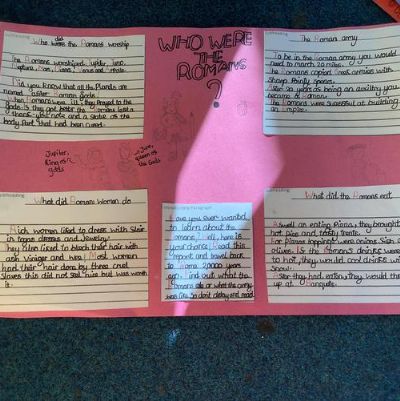 WHO WERE
THE
ROMANS
?
Who did the Romans worship
The Romans worshiped Jupiter, Juno,
Neptune, Mars, Venus and
Did you know that all the Planets are
named after Roman gods!
When Romans were ill, they prayed to the
gods. If they got better the Romans left a
thank you note and a statue of the
body part that had been cured.
The Roman army
To be in the Roman army you would
need to march 20 miles.
The Romans copied Greek armies with
sharp Pointy spears.
After 20 years of being an
became a Roman.
The Romans were successful at building
an Empire.
Jupiter,
king of
gods
Juno,
queen of
the Gods
What did Romans women do
Rich women liked to dress with
in togas dresses and Jewelry.
They also liked to black their hair with
ash vinegar and wax! Most women
had their hair done by three cruel
slaves this did not
hurt it.
Have you ever wanted
to learn about the
Romans? Well, here is
your chance. Read this
report and travel back
to Roma 2,000 years
ago. Find out what the
Romans ate or what the army
was like. So don't delay and read
What did the Romans eat
As well as eating Pizza, they brought
hot pies and tasty treats.
For Pizzas toppings were onions fish and
olives. If the Romans' drinks were
to hot, they would cool drinks with
snow.
After they had eaten, they would throw
up at Banquets.